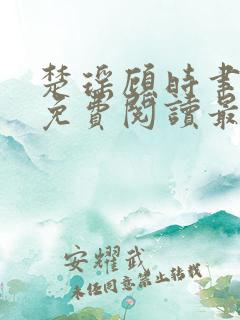 楚瑶顾时書
免費閱讀最
安耀武
未经同意禁止转载